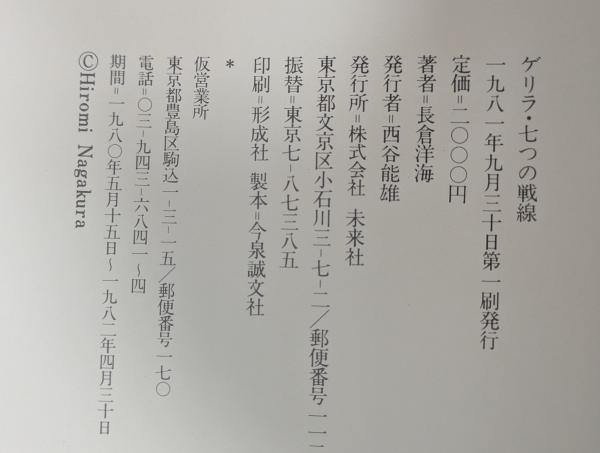 ゲリラ・七つの戦線
一九八一年九月三十日第一刷発行
定価＝二〇〇〇円
著者＝長倉洋海
発行者＝西谷能雄
発行所＝株式会社 未来社
東京都文京区小石川三-七-二／郵便番号一一一
振替＝東京七-八七三八五
印刷＝形成社 製本＝今泉誠文社
*
仮営業所
東京都豊島区駒込一-三-一五／郵便番号一七〇
電話＝〇三-九四三-六八四一～四
期間＝一九八〇年五月十五日～一九八二年四月三十日
©Hiromi Nagakura